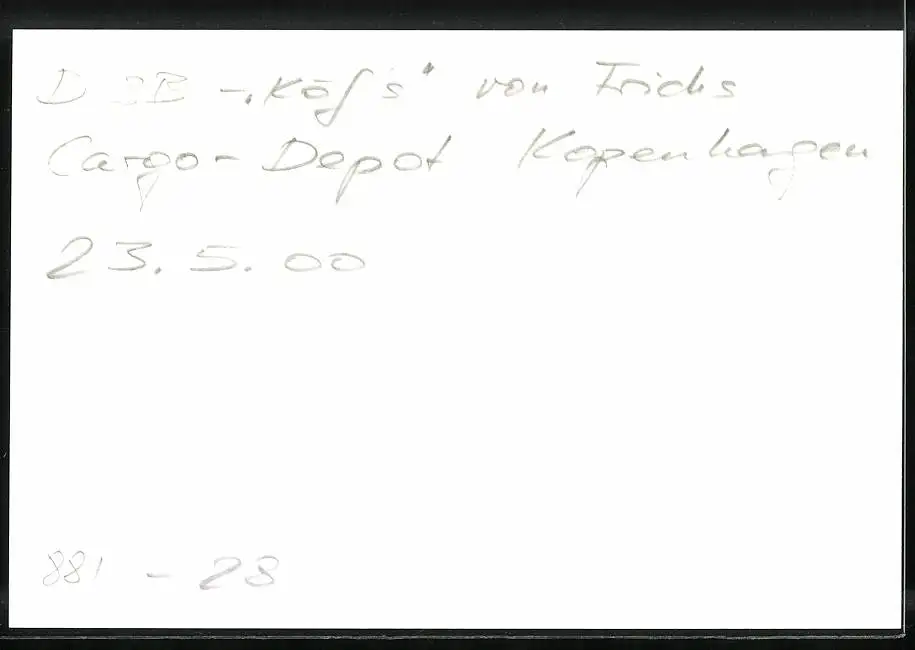 DSB-„Köf's“ von Frichs
Cargo-Depot Kopenhagen
23.5.00
881 - 28